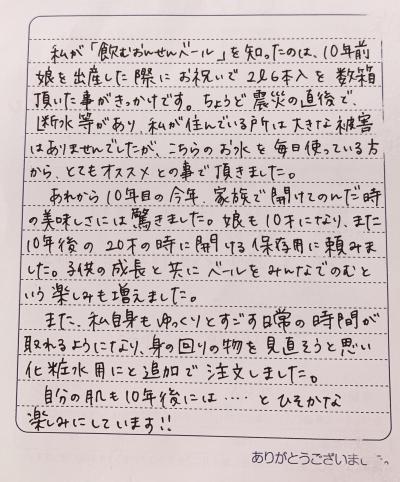 私が「飲むおんせんベール」を知ったのは、10年前
娘を出産した際にお祝いで2ℓ6本入を数箱
頂いた事がきっかけです。ちょうど震災の直後で、
断水等があり、私が住んでいる所は大きな被害
はありませんでしたが、こちらのお水を毎日使っている方
から、とてもオススメとの事で頂きました。
あれから10年目の今年、家族で開けてのんだ時
の美味しさには驚きました。娘も10才になり、また
10年後の20才の時に開ける保存用に頼みま
した。子供の成長と共にベールをみんなでのむと
いう楽しみも増えました。
また、私自身もゆっくりとすごす日常の時間が
取れるようになり、身の回りの物を見直そうと思い
化粧水用にと追加で注文しました。
自分の肌も10年後には‥‥とひそかな
楽しみにしています!!
ありがとうございまし